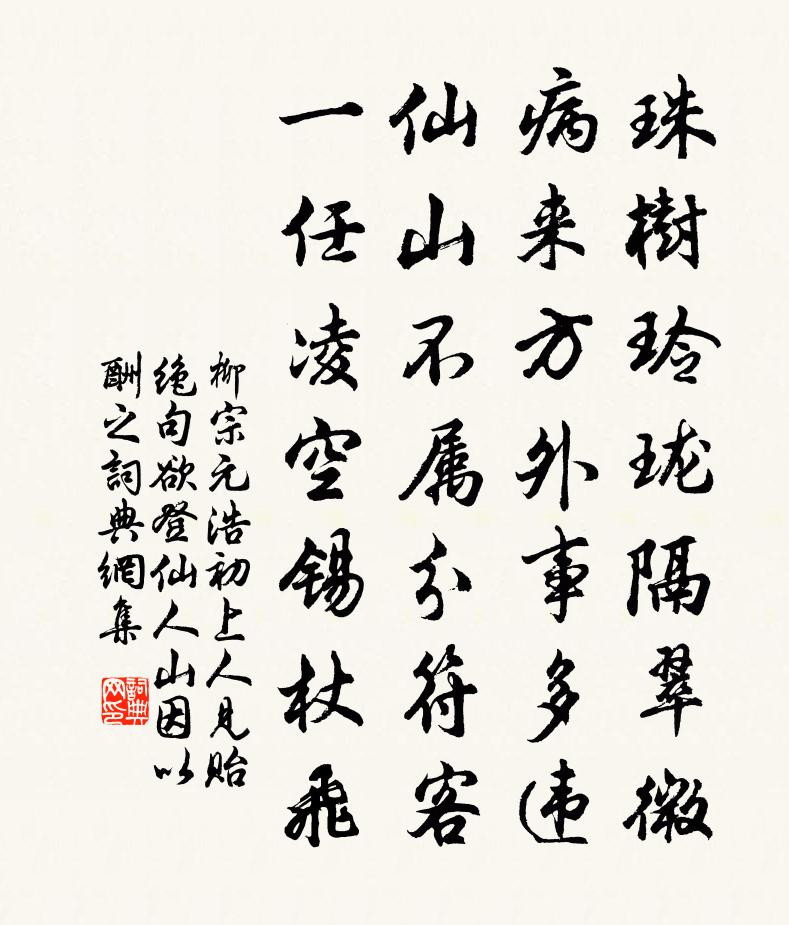 珠樹玲珑隔翠微
病来方外事多违
仙山不属分符客
一任凌空锡杖飛
柳宗元浩初上人見貽
绝句欲登仙人山因以
酬之詞典網集
詞典
网印